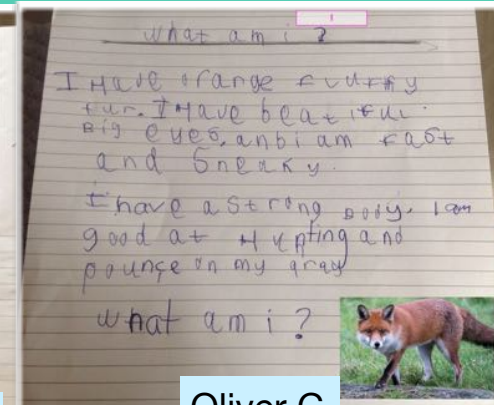 what am i ?
I Have orange fluffy
fur. I Have beatiful
Big eyes. anb i am fast
and Sneaky.
I have a Strong Body. I am
good at Hunting and
pounce on my pray
what am i ?
Oliver C